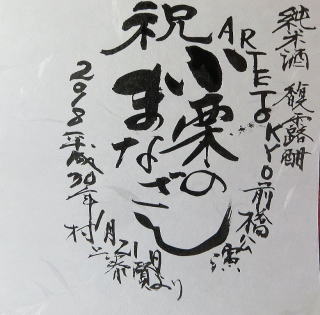 純米酒 馥露酣
ARTETOKYO前橋公演
祝
小栗の
まなざし
2018平成30年1月21日より